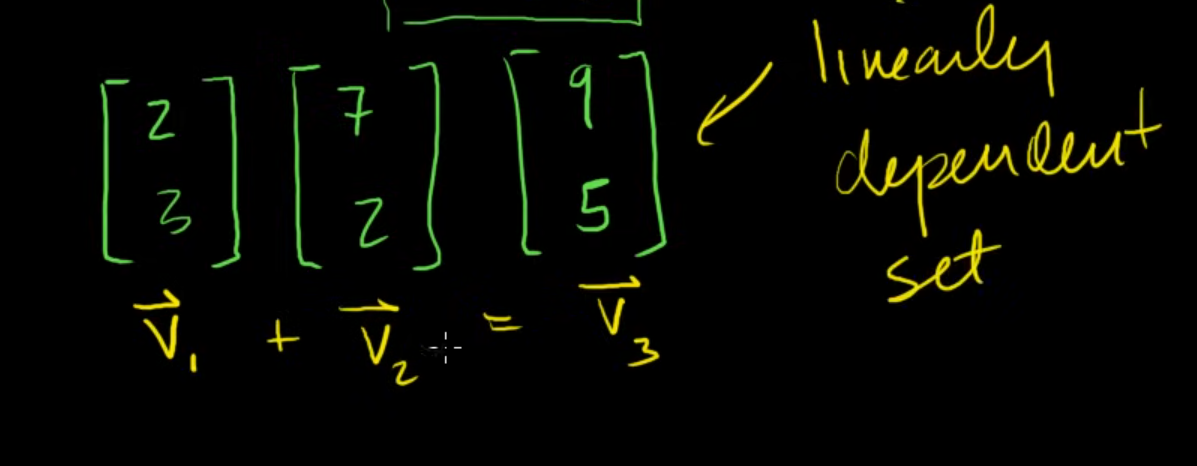 2 7 9
3 2 5
V⃗₁ + V⃗₂ = V⃗₃
linearly
dependent
set